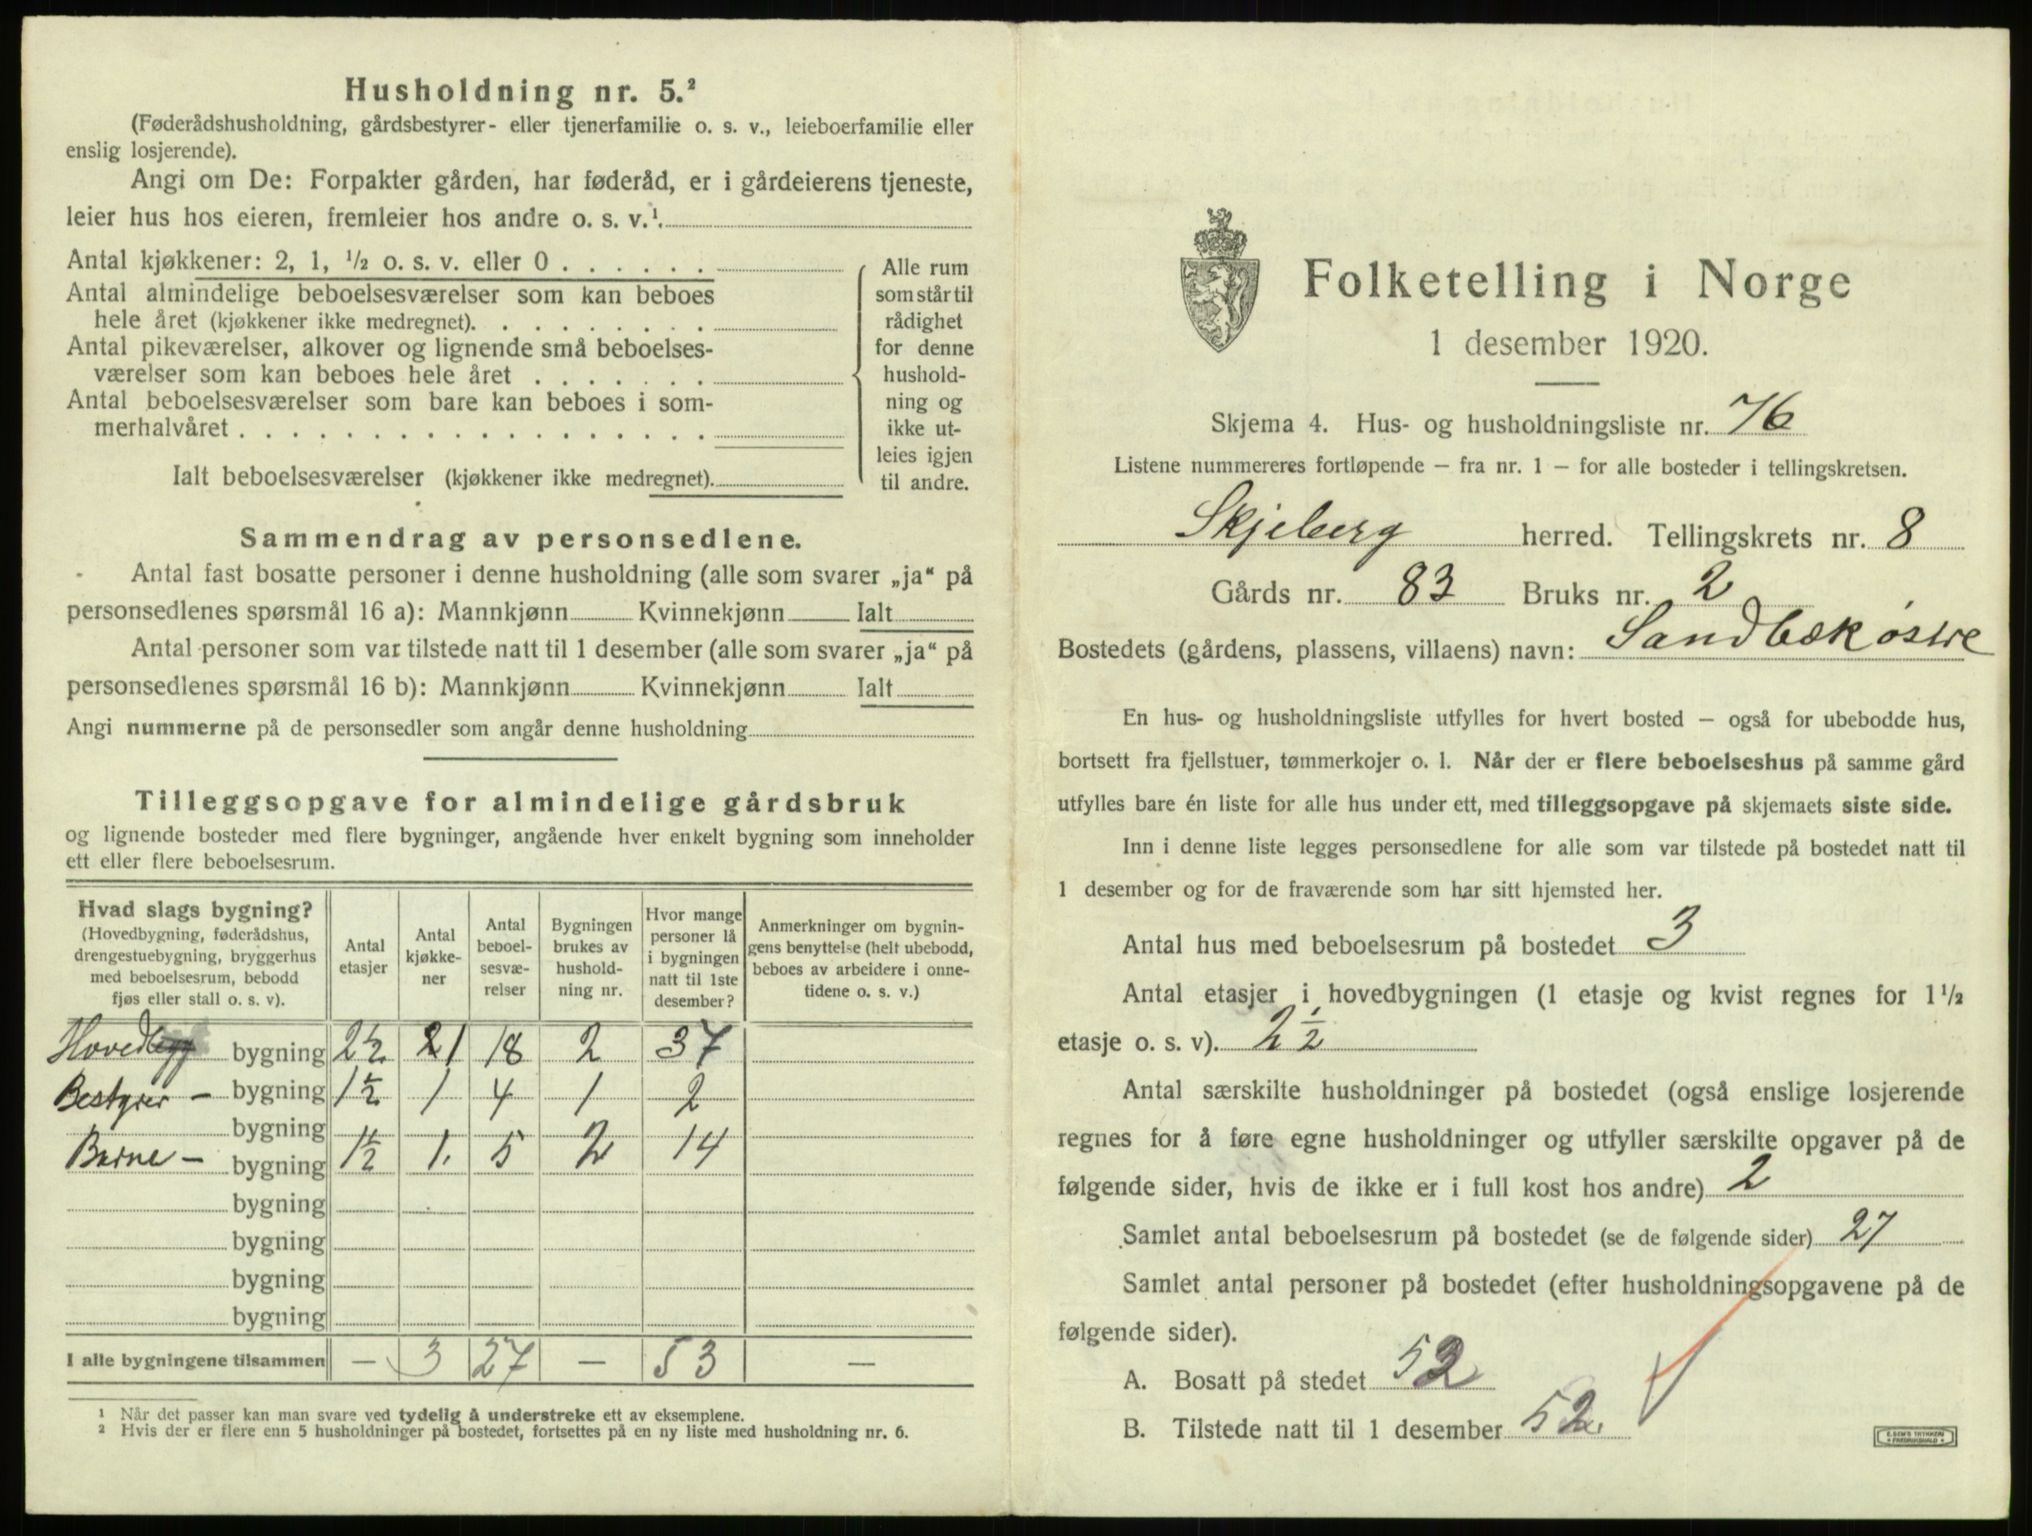 Husholdning nr. 5.²
(Føderådshusholdning, gårdsbestyrer- eller tjenerfamilie o. s. v., leieboerfamilie eller
enslig losjerende).
Angi om De: Forpakter gården, har føderåd, er i gårdeierens tjeneste,
leier hus hos eieren, fremleier hos andre o. s. v.¹.
Antal kjøkkener: 2, 1, ½ o. s. v. eller 0 . . . . . .
Antal almindelige beboelsesværelser som kan beboes
hele året (kjøkkener ikke medregnet). . . . . . . . .
Antal pikeværelser, alkover og lignende små beboelses-
værelser som kan beboes hele året . . . . . . .
Antal beboelsesværelser som bare kan beboes i som-
merhalvåret . . . . . . . . . . . . . . . . . .
Ialt beboelsesværelser (kjøkkener ikke medregnet).
Alle rum
som står til
rådighet
for denne
hushold-
ning og
ikke ut-
leies igjen
til andre.
Sammendrag av personsedlene.
Antal fast bosatte personer i denne husholdning (alle som svarer „ja“ på
personsedlenes spørsmål 16 a): Mannkjønn Kvinnekjønn Ialt
Antal personer som var tilstede natt til 1 desember (alle som svarer „ja“ på
personsedlenes spørsmål 16 b): Mannkjønn Kvinnekjønn Ialt
Angi nummerne på de personsedler som angår denne husholdning
Tilleggsopgave for almindelige gårdsbruk
og lignende bosteder med flere bygninger, angående hver enkelt bygning som inneholder
ett eller flere beboelsesrum.
Hvad slags bygning?
(Hovedbygning, føderådshus,
drengestuebygning, bryggerhus
med beboelsesrum, bebodd
fjøs eller stall o. s. v).
Antal
etasjer
Antal
kjøkke-
ner
Antal
beboel-
sesvæ-
relser
Bygningen
brukes av
hushold-
ning nr.
Hvor mange
personer lå
i bygningen
natt til 1ste
desember?
Anmerkninger om bygnin-
gens benyttelse (helt ubebodd,
beboes av arbeidere i onne-
tidene o. s. v.)
Hovedbygg bygning 2½ 1 18 2 37
Bestyrer - bygning 1½ 1 4 1 2
bygning
Barne - bygning 1½ 1. 5 2 14
bygning
bygning
bygning
bygning
I alle bygningene tilsammen — 3 27 — 53 —
¹ Når det passer kan man svare ved tydelig å understreke ett av eksemplene.
² Hvis der er flere enn 5 husholdninger på bostedet, fortsettes på en ny liste med husholdning nr. 6.
Folketelling i Norge
1 desember 1920.
Skjema 4. Hus- og husholdningsliste nr. 76
Listene nummereres fortløpende — fra nr. 1 — for alle bosteder i tellingskretsen.
Skjeberg herred. Tellingskrets nr. 8
Gårds nr. 83 Bruks nr. 2
Bostedets (gårdens, plassens, villaens) navn: Sandbæk østre
En hus- og husholdningsliste utfylles for hvert bosted — også for ubebodde hus,
bortsett fra fjellstuer, tømmerkojer o. l. Når der er flere beboelseshus på samme gård
utfylles bare én liste for alle hus under ett, med tilleggsopgave på skjemaets siste side.
Inn i denne liste legges personsedlene for alle som var tilstede på bostedet natt til
1 desember og for de fraværende som har sitt hjemsted her.
Antal hus med beboelsesrum på bostedet 3
Antal etasjer i hovedbygningen (1 etasje og kvist regnes for 1½
etasje o. s. v). 2½
Antal særskilte husholdninger på bostedet (også enslige losjerende
regnes for å føre egne husholdninger og utfyller særskilte opgaver på de
følgende sider, hvis de ikke er i full kost hos andre) 2
Samlet antal beboelsesrum på bostedet (se de følgende sider) 27
Samlet antal personer på bostedet (efter husholdningsopgavene på de
følgende sider).
A. Bosatt på stedet 52
B. Tilstede natt til 1 desember 52.